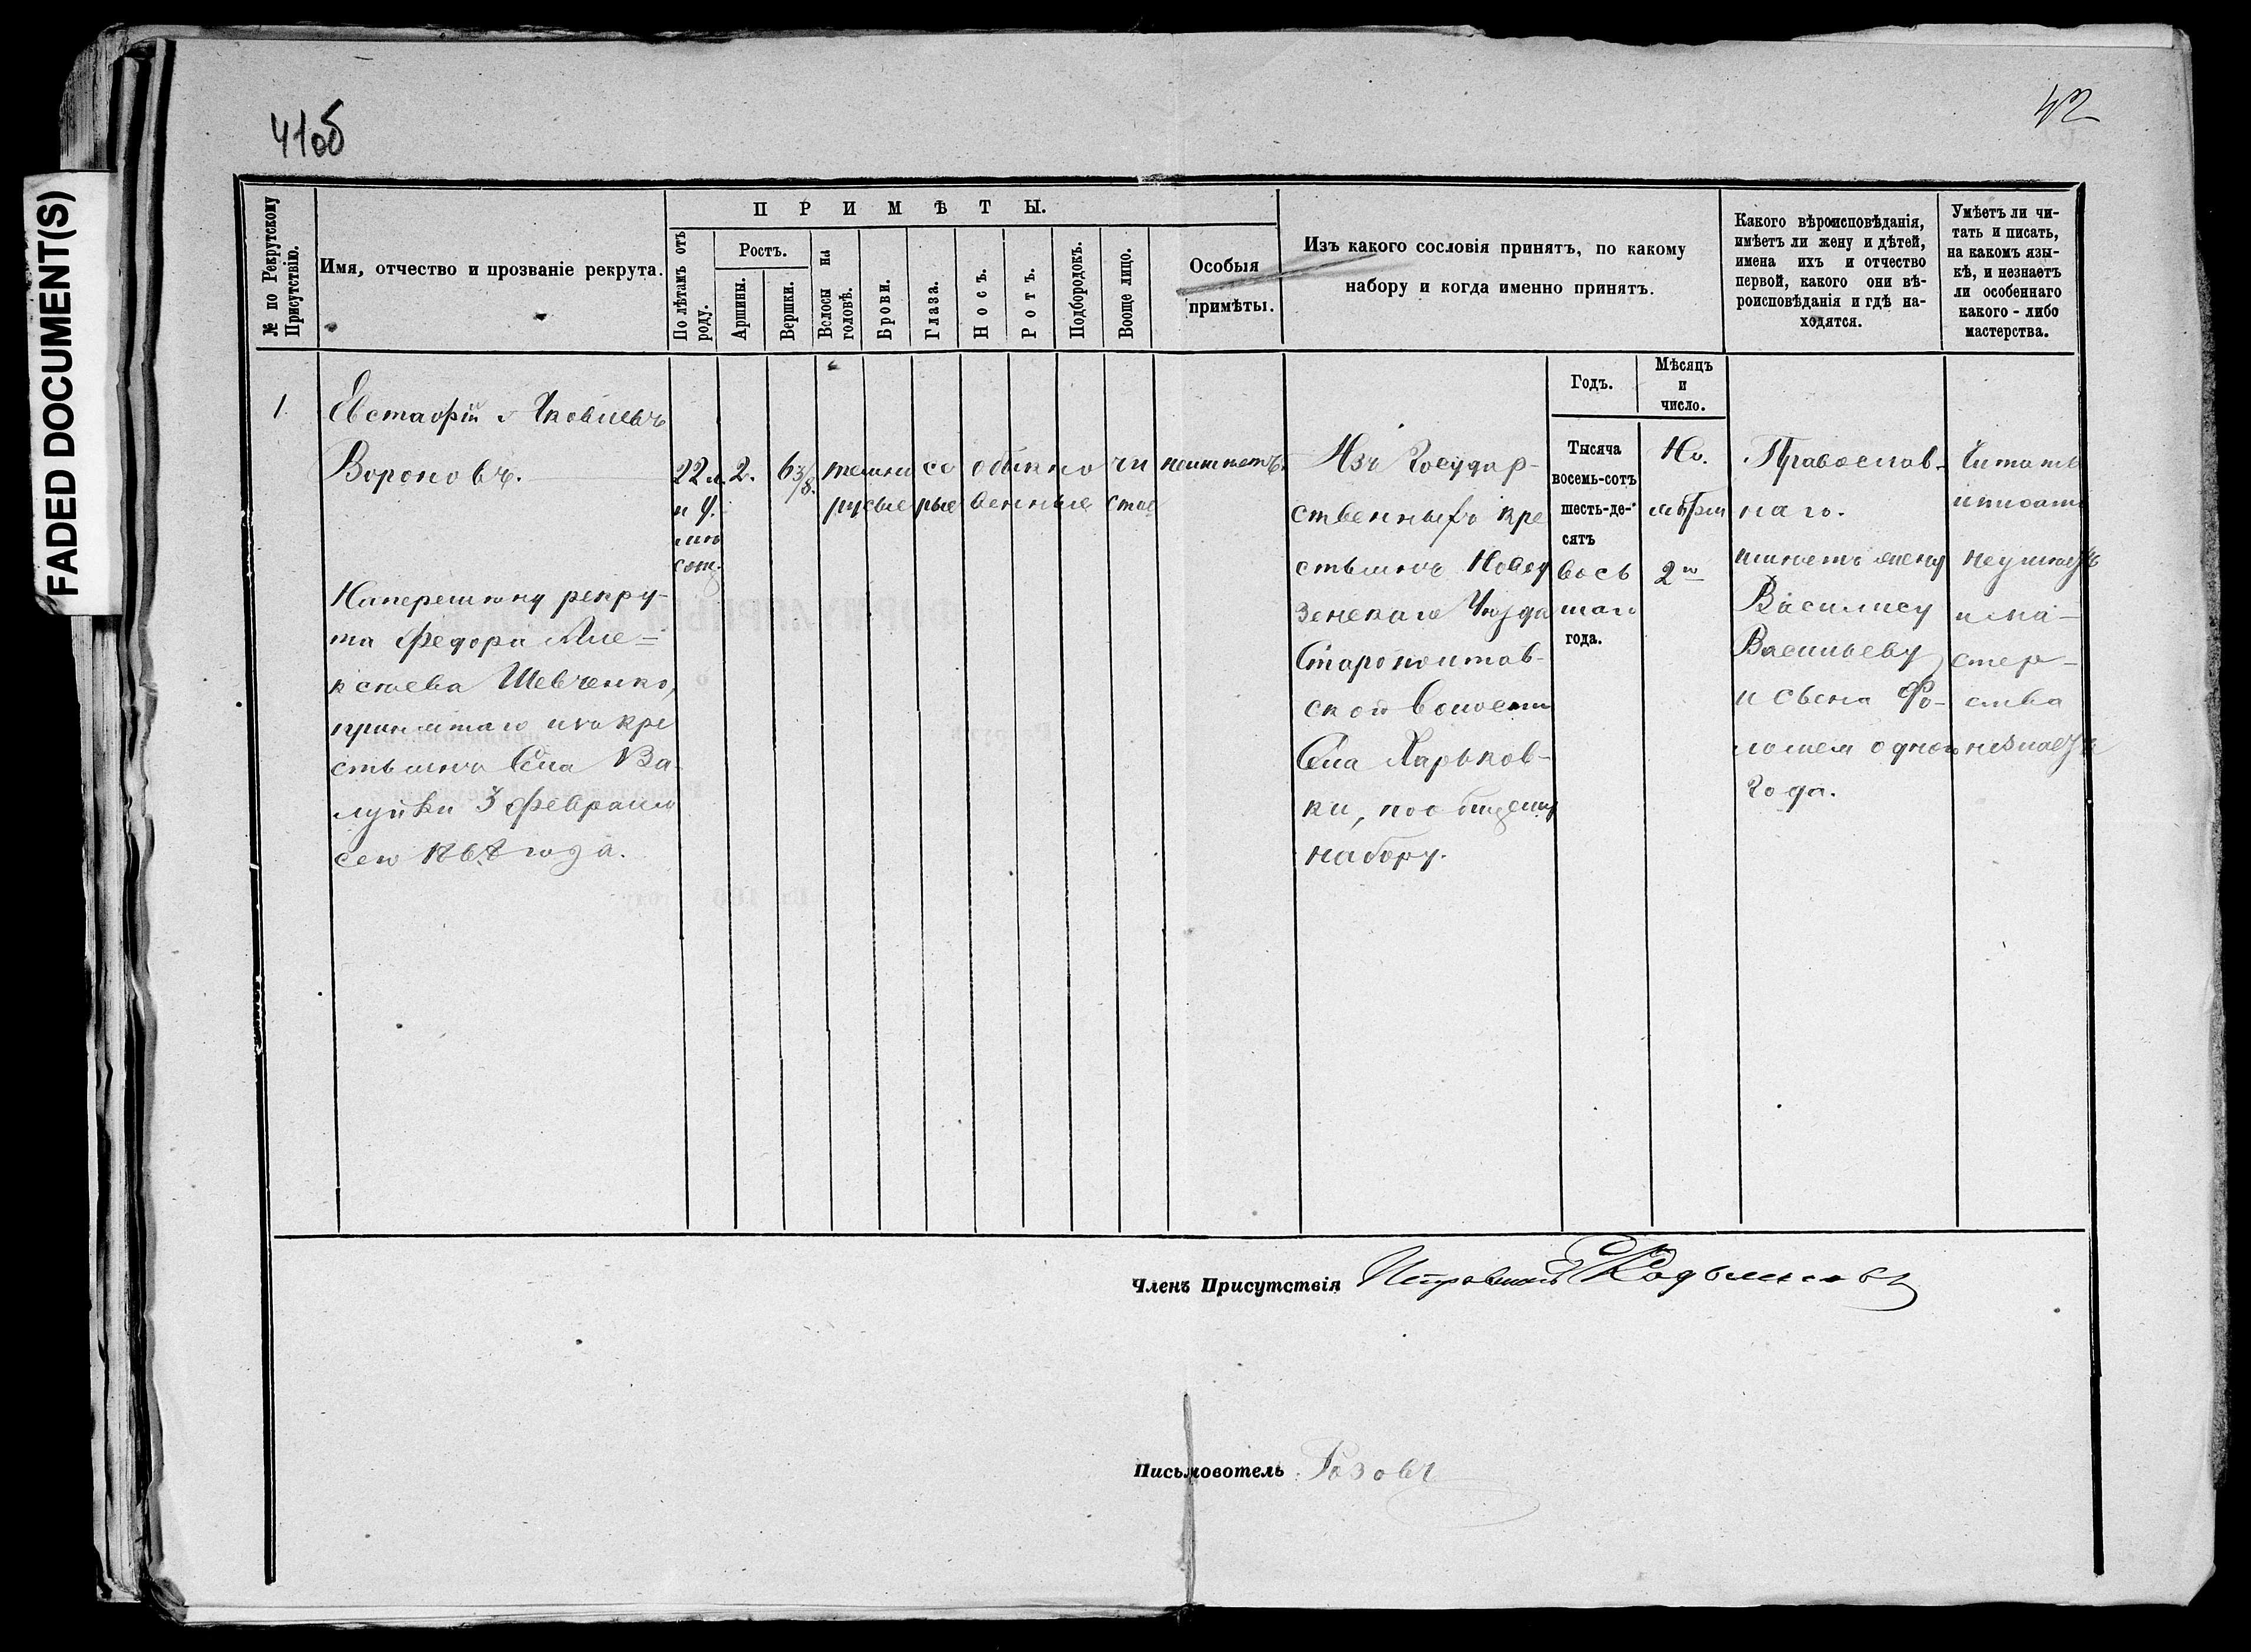 FADED DOCUMENT(S)
41об
42
№ по Рекрутскому Присутствію.
Имя, отчество и прозваніе рекрута.
ПРИМѢТЫ.
По лѣтамъ отъ роду.
Ростъ.
Аршины.
Вершки.
Волосы на головѣ.
Брови.
Глаза.
Носъ.
Ротъ.
Подбородокъ.
Вооще лицо.
Особыя
примѣты.
Изъ какого сословія принятъ, по какому
набору и когда именно принятъ.
Какого вѣроисповѣданія,
имѣетъ ли жену и дѣтей,
имена ихъ и отчество
первой, какого они вѣ-
роисповѣданія и гдѣ на-
ходятся.
Умѣетъ ли чи-
тать и писать,
на какомъ язы-
кѣ, и незнаетъ
ли особеннаго
какого - либо
мастерства.
Годъ.
Мѣсяцъ
и
число.
1.
Евстафій Яковлевъ
Вороновъ.
Наперемѣну рекру-
та Федора Але-
ксѣева Шевченко,
принятаго изъ кре
стьянъ Села Ва-
луйки 3 Февраля
сего 1868 года.
22 л.
и 4.
мѣ
сяц.
2.
6 3/8.
темно
русые
сѣ
рые
обыкно
венные
чи
стое
неимѣетъ.
Изъ Государ-
ственныхъ кре
стьянъ Новоу
зенскаго Уѣзда
Старополтав-
ской Волости
Села Харьков-
ки, пообщему
набору.
Тысяча
восемь-сотъ
шесть-де-
сятъ
вось
маго
года.
Но.
ября
2го
Православ-
наго.
имѣетъ жену
Василису
Васильеву
и сына Фо-
одного
Года.
Читать
иписать
неумѣетъ
и ма-
стер-
ства
незнаетъ
Членъ Присутствія Исправникъ
Письмоводитель Розовъ